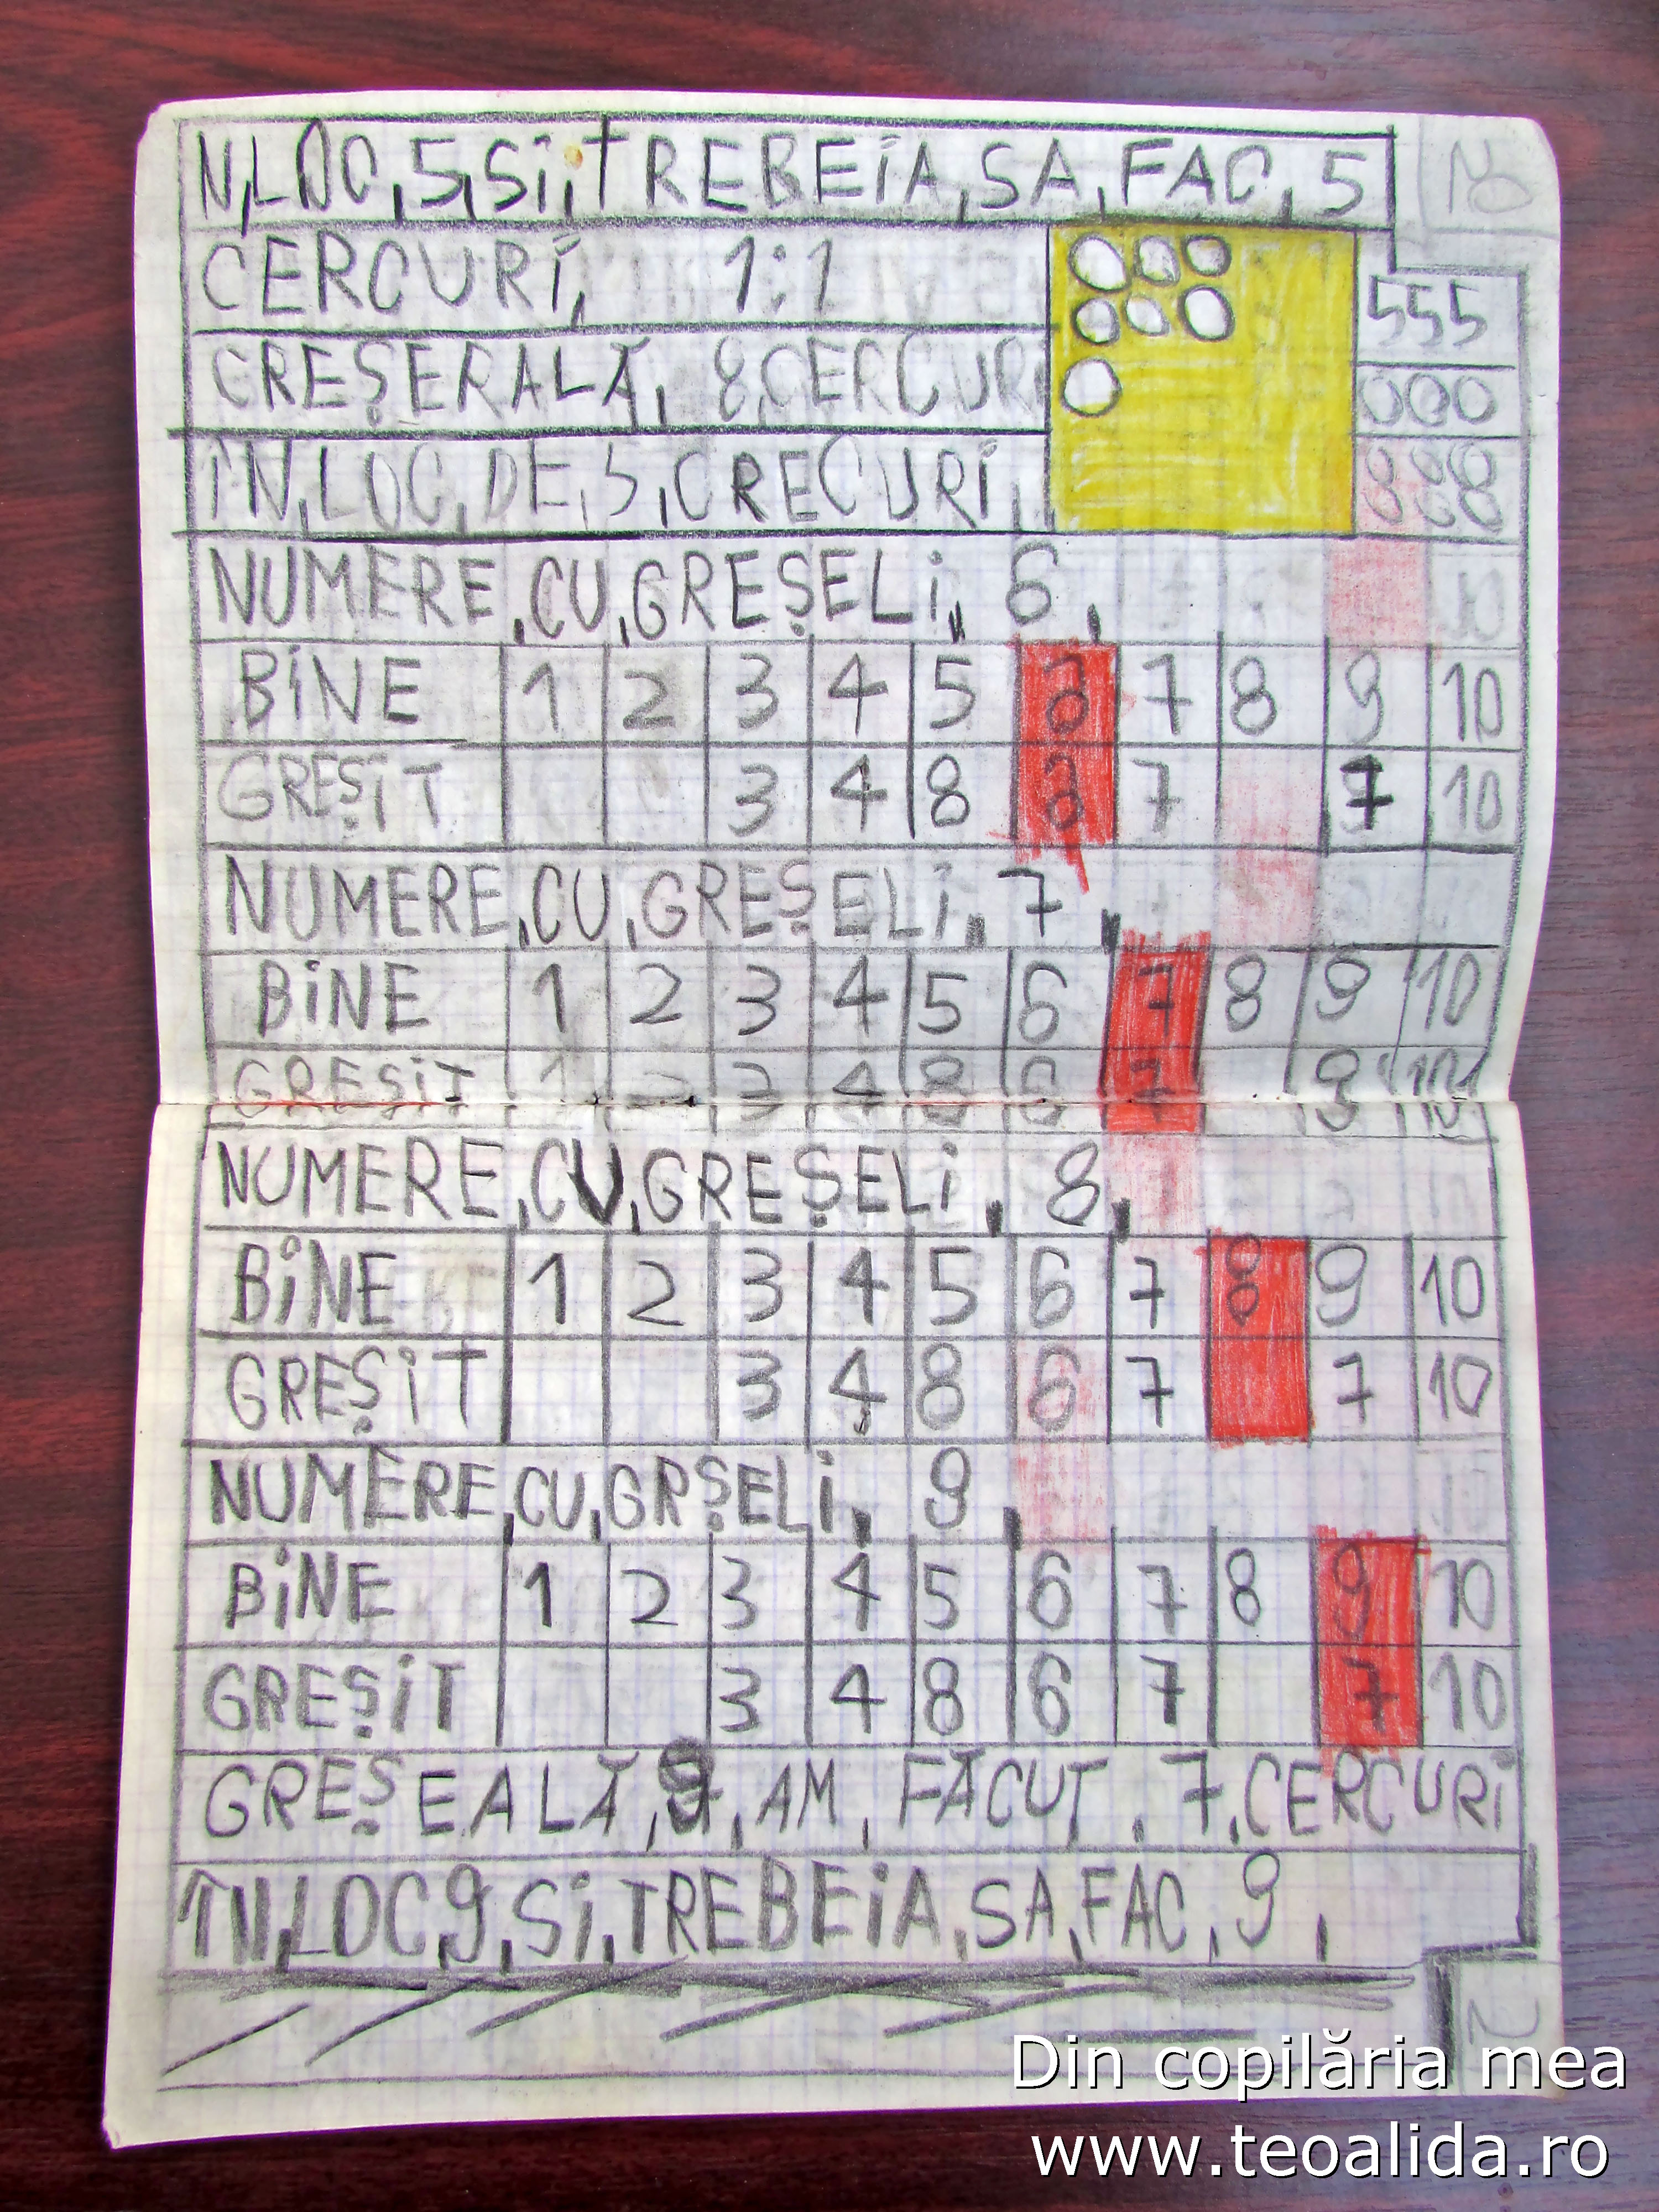 N,LOC,5,Si,TREBEiA,SA,FAC,5
CERCURi, 1:1
555
CREȘERALĂ, 8,CERCURi
000
iN,LOC,DE,5,CRECURi,
888
NUMERE,CU,GREȘELi, 6,
BiNE 1 2 3 4 5 7 8 9 10
GREȘiT 3 4 8 7 7 10
NUMERE,CU,GREȘELi, 7,
BiNE 1 2 3 4 5 6 7 8 9 10
GREȘiT 1 2 3 4 8 6 7 9 10
NUMERE,CU,GREȘELi, 8,
BiNE 1 2 3 4 5 6 7 8 9 10
GREȘiT 3 4 8 6 7 7 10
NUMERE,CU,GRȘELi, 9,
BiNE 1 2 3 4 5 6 7 8 9 10
GREȘiT 3 4 8 6 7 7 10
GREȘEALĂ,9,AM,FĂCUT,7,CERCURi
iN,LOC,9,Si,TREBEiA,SA,FAC,9,
2
Din copilăria mea
www.teoalida.ro